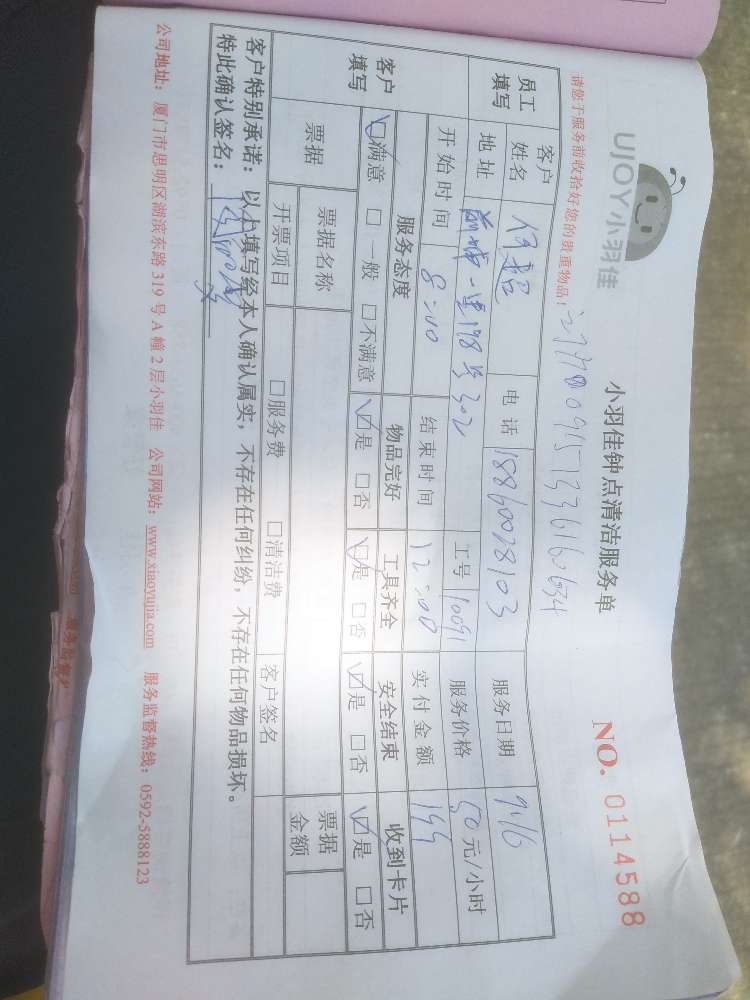 UJOY小羽佳
小羽佳钟点清洁服务单
NO. 0114588
请您于服务前收拾好您的贵重物品!
员工填写 客户姓名 何超 电话 18860028103 服务日期 9/16
地址 一里198号302 工号 10091 服务价格 50元/小时
开始时间 8:00 结束时间 12:00 实付金额
客户填写 服务态度 物品完好 工具齐全 安全结束 收到卡片
☑满意 □一般 □不满意 ☑是 □否 ☑是 □否 ☑是 □否 ☑是 □否
票据 票据名称 票据金额
开票项目 □服务费 □清洁费 客户签名
客户特别承诺:以上填写经本人确认属实,不存在任何纠纷,不存在任何物品损坏。
特此确认签名:
公司地址:厦门市思明区湖滨东路319号A幢2层小羽佳 公司网站:www.xiaoyujia.com 服务监督热线:0592-5888123